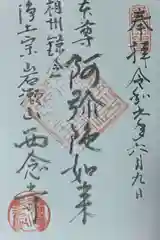 奉拝 令和六年六月九日
本尊
阿弥陀如来
相州鎌倉
浄土宗岩瀬山
西念寺